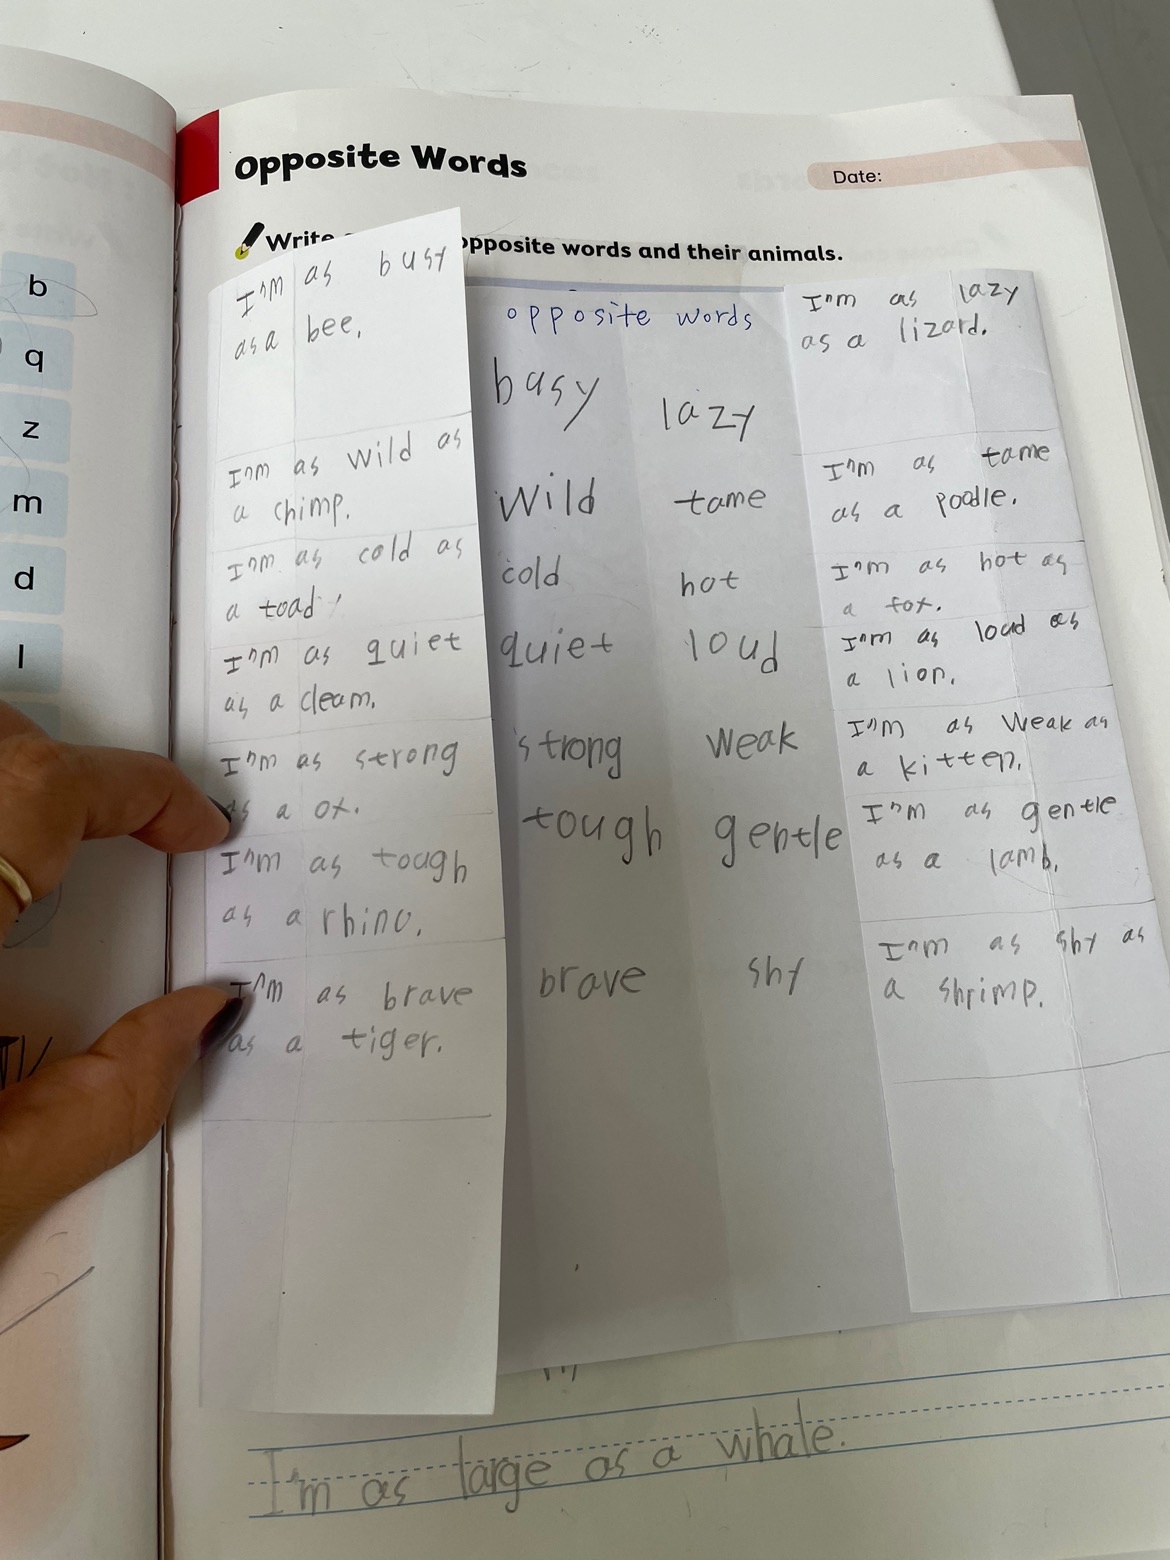 Opposite Words
Date:
Write opposite words and their animals.
b
q
z
m
d
l
I'm as busy
as a bee.
I'm as wild as
a chimp.
I'm as cold as
a toad.
I'm as quiet
as a cleam.
I'm as strong
as a ox.
I'm as tough
as a rhino.
I'm as brave
as a tiger.
opposite words
busy lazy
wild tame
cold hot
quiet loud
strong weak
tough gentle
brave shy
I'm as lazy
as a lizard.
I'm as tame
as a poodle.
I'm as hot as
a fox.
I'm as loud as
a lion.
I'm as weak as
a kitten.
I'm as gentle
as a lamb.
I'm as shy as
a shrimp.
I'm as large as a whale.